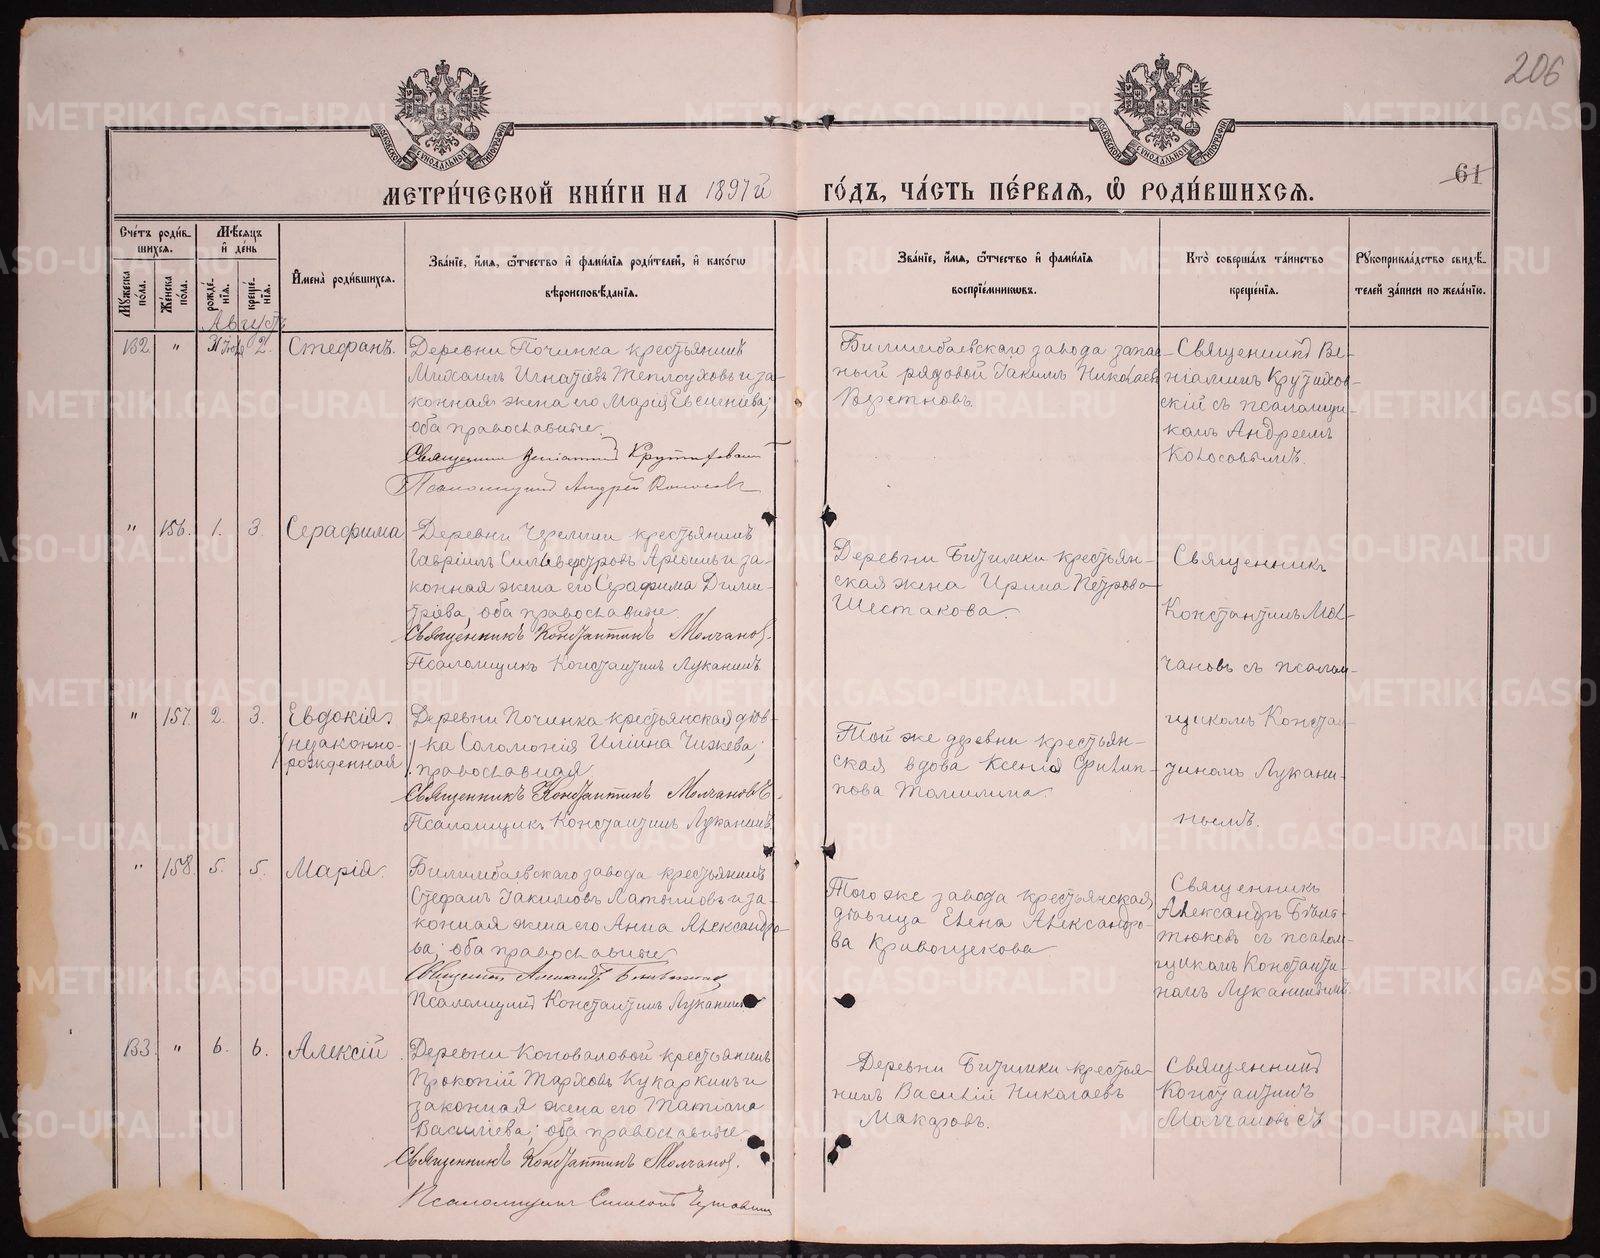 206
МОСКОВСКОЙ СѴНОДАЛЬНОЙ ТИПОГРАФІИ
МОСКОВСКОЙ СѴНОДАЛЬНОЙ ТИПОГРАФІИ
61
МЕТРИ́ЧЕСКОЙ КНИ́ГИ НА 1897й ГО́ДЪ, ЧА́СТЬ ПЕ́РВАѦ, Ѡ РОДИ́ВШИХСѦ.
Сче́тъ роди́в-
шихся.
Мѣ́сяцъ
и́ де́нь
Му́жеска по́ла.
Же́нска по́ла.
рожде́-
нїя.
креще́-
нїя.
И҆мена̀ роди́вшихся.
Зва́нїе, и҆́мя, ѻ҆́тчество и҆ фамі́лїя роди́телей, и҆ како́гѡ
вѣроисповѣ́данїя.
Зва́нїе, и҆́мя, ѻ҆́тчество и҆ фамі́лїя
воспрїе́мникѡвъ.
Кто̀ соверша́лъ та́инство
креще́нїя.
Рꙋкоприкла́дство свидѣ́-
телей за́писи по жела́нїю.
Августъ
132. " 31 Іюля 2. Стефанъ.
Деревни Починка крестьянинъ
Михаилъ Игнатіевъ Теплоуховъ и за-
конная жена его Марія Евсигніева;
оба православные.
Священникъ Веніаминъ Крутиховскій
Псаломщикъ Андрей Колосовъ
Билимбаевскаго завода запас-
ный рядовой Іакимъ Николаевъ
Веретновъ.
Священникъ Ве-
ніаминъ Крутихов-
скій съ псаломщи-
комъ Андреемъ
Колосовымъ.
" 156. 1. 3. Серафима
Деревни Черемши крестьянинъ
Гавріилъ Сильверстровъ и за-
конная жена его Серафима Дими-
тріева; оба православные
Священникъ Константинъ Молчановъ.
Псаломщикъ Константинъ Луканинъ.
Деревни Битимки крестьян-
ская жена Ирина Петрова
Шестакова.
Священникъ
Константинъ Мол-
чановъ съ псалом-
щикомъ Констан-
тиномъ Лукани-
нымъ.
" 157. 2. 3. Евдокія
(незаконно-
рожденная)
Деревни Починка крестьянская дѣв-
ка Соломонія Иліина Чижева;
православная
Священникъ Константинъ Молчановъ.
Псаломщикъ Константинъ Луканинъ
Той же деревни крестьян-
ская вдова Ксенія Филип-
пова Томилина.
" 158. 5. 5. Марія.
Билимбаевскаго завода крестьянинъ
Стефанъ Іакимовъ Латыповъ и за-
конная жена его Анна Александро-
ва; оба православные
Священникъ Александръ
Псаломщикъ Константинъ Луканинъ
Того же завода крестьянская
дѣвица Елена Александро-
ва Кривощекова
Священникъ
Александръ
съ псалом-
щикомъ Константи-
номъ Луканинымъ.
133. " 6. 6. Алексій.
Деревни Коноваловой крестьянинъ
Прокопій Тарховъ Кукаркинъ и
законная жена его Татіана
Василіева; оба православные
Священникъ Константинъ Молчановъ.
Псаломщикъ
Деревни Битимки крестья-
нинъ Василій Николаевъ
Макаровъ.
Священникъ
Константинъ
Молчановъ съ